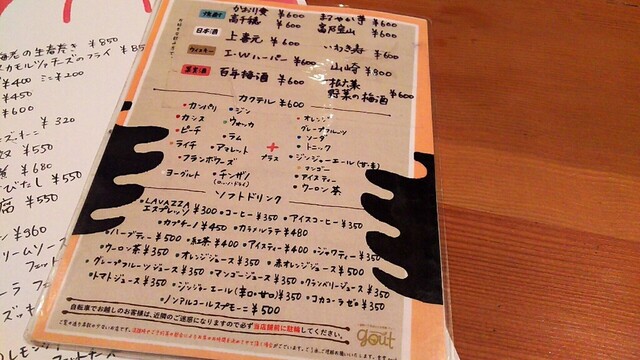 海老の生春巻き ¥850
カモルツァチーズのフライ ¥85
¥400 ミニ¥200
¥450
¥600
¥320
奴 ¥550
¥680
びたし ¥550
¥550
¥960
リームソース
焼酎 かおり ¥600
高千穂 ¥600 ¥600
日本酒 上喜元 ¥600 いわき寿 ¥600
ウイスキー I.Wハーパー ¥600 山崎 ¥800
果実酒 百年梅酒 ¥600 野菜の梅酒 ¥600
カクテル ¥600
・カンパリ ・ジン ・オレンジ
・カシス ・ウォッカ ・グレープフルーツ
・ピーチ ・ラム ・ソーダ
・ライチ ・アマレット + ・トニック
・フランボワーズ プラス ・ジンジャーエール(甘・辛)
・ヨーグルト ・チンザノ ・マンゴー
・アイスティー
・ウーロン茶
ソフトドリンク
・LAVAZZA
エスプレッソ ¥300 ・コーヒー ¥350 ・アイスコーヒー ¥350
・カプチーノ ¥450 ・カラメルラテ ¥480
・ハーブティー ¥500 ・紅茶 ¥400 ・アイスティー ¥400 ・ジャワティー ¥350
・ウーロン茶 ¥350 ・オレンジジュース ¥350 ・赤オレンジジュース ¥500
・グレープフルーツジュース ¥350 ・マンゴージュース ¥350 ・クランベリージュース ¥350
・トマトジュース ¥350 ・ジンジャーエール(辛口・甘口) ¥350 ・コカコーラゼロ ¥350
・ノンアルコールスプモーニ ¥500
自転車でお越しのお客様は、近隣のご迷惑になりますので必ず当店舗前に駐輪してください。
gout